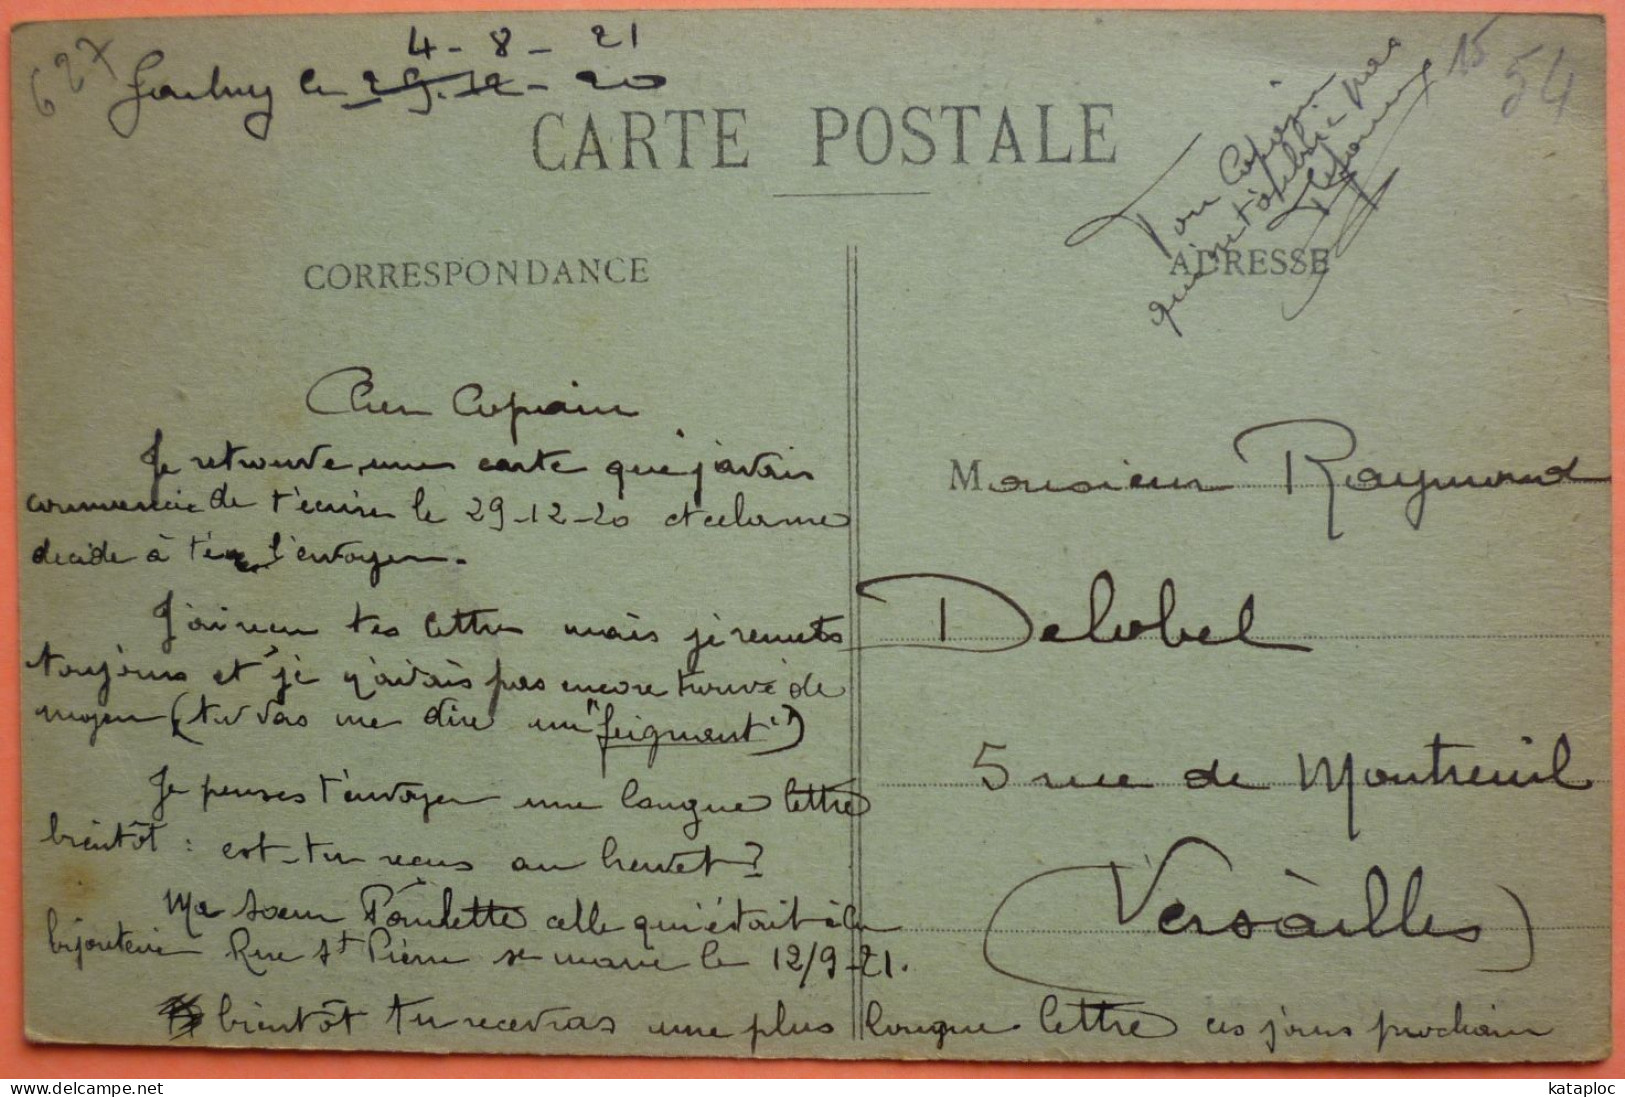 627
4-8-21
le 29-12-20
15
54
CARTE POSTALE
Ton Copain
qui ne t'oublie pas
CORRESPONDANCE
ADRESSE
Cher Copain
Je retrouve une carte que j'avais
commencée de t'écrire le 29-12-20 et cela me
decide à t'en l'envoyer.
J'ai reçu tes lettres mais je remets
toujours et je n'avais pas encore trouvé de
moyen (tu vas me dire un "feignant")
Je penses t'envoyer une longue lettre
bientôt : est-tu reçus au brevet?
Ma soeur Paulette celle qui était à la
bijouterie Rue St Pierre se marie le 12/9-21.
bientôt tu recevras une plus longue lettre ces jours prochain
Monsieur Raymond
Delobel
5 rue de Montreuil
(Versailles)
kataploc